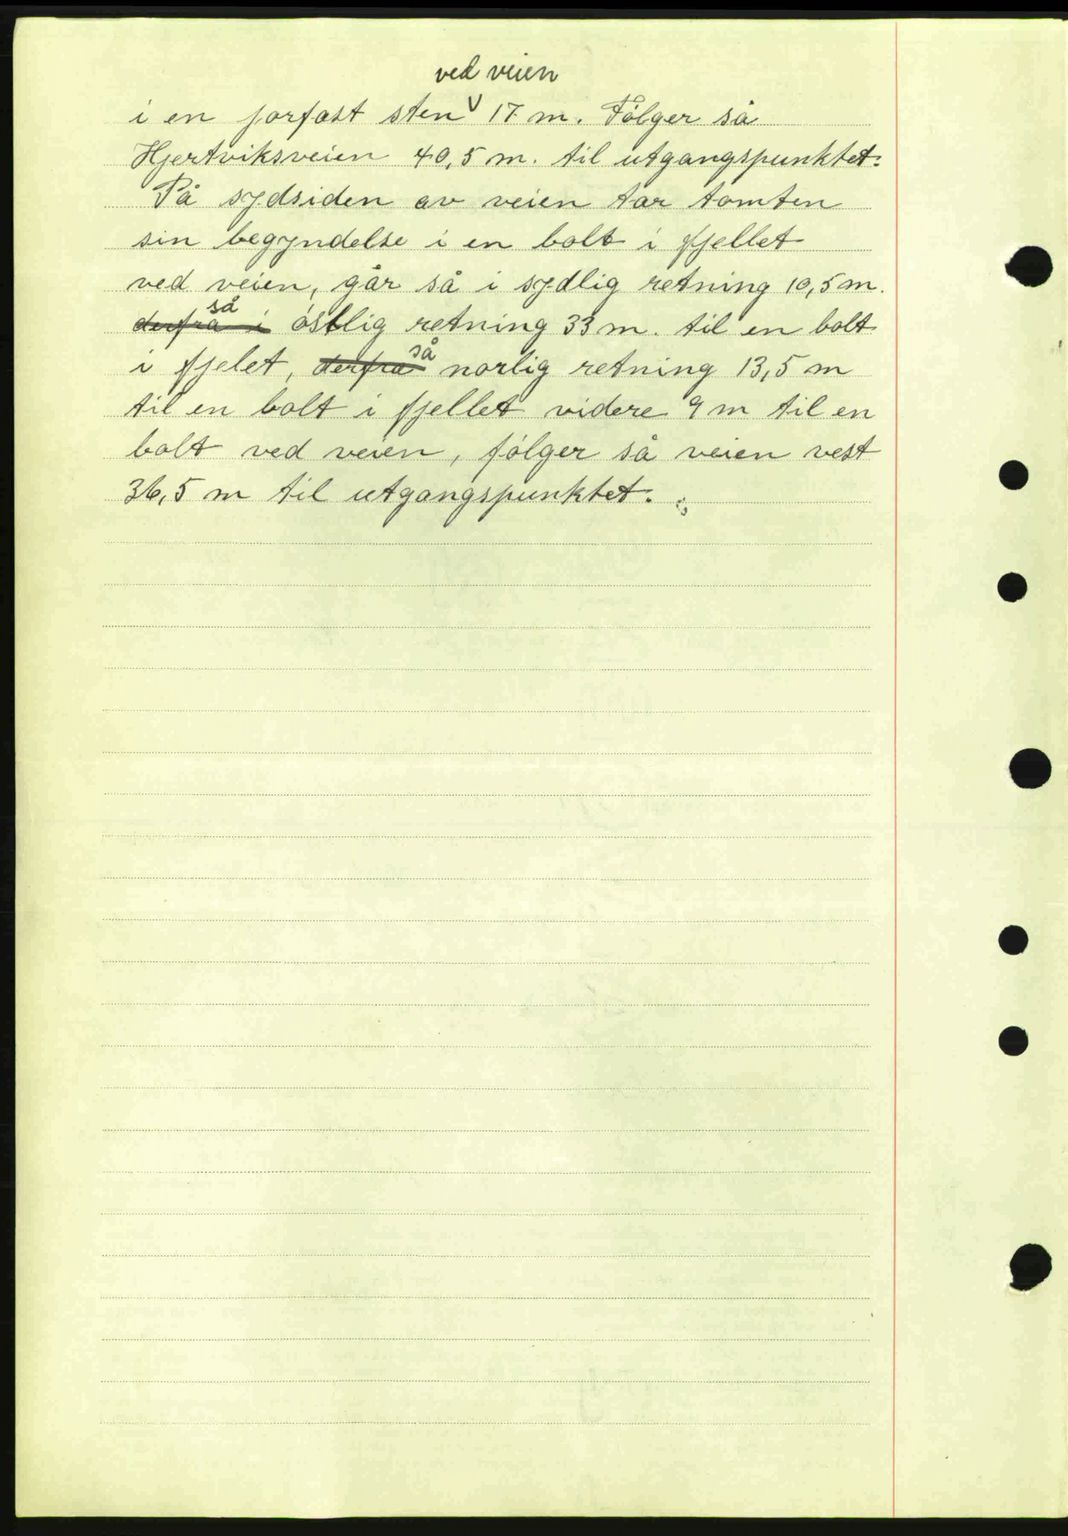 ved veien
i en jorfast sten V 17 m. Følger så
Hjertviksveien 40,5 m. til utgangspunktet.
På sydsiden av veien tar tomten
sin begyndelse i en bolt i fjellet
ved veien, går så i sydlig retning 10,5 m.
så
derfra i östlig retning 33 m. til en bolt
så
i fjelet, derfra norlig retning 13,5 m
til en bolt i fjellet videre 9 m til en
bolt ved veien, følger så veien vest
36,5 m til utgangspunktet.